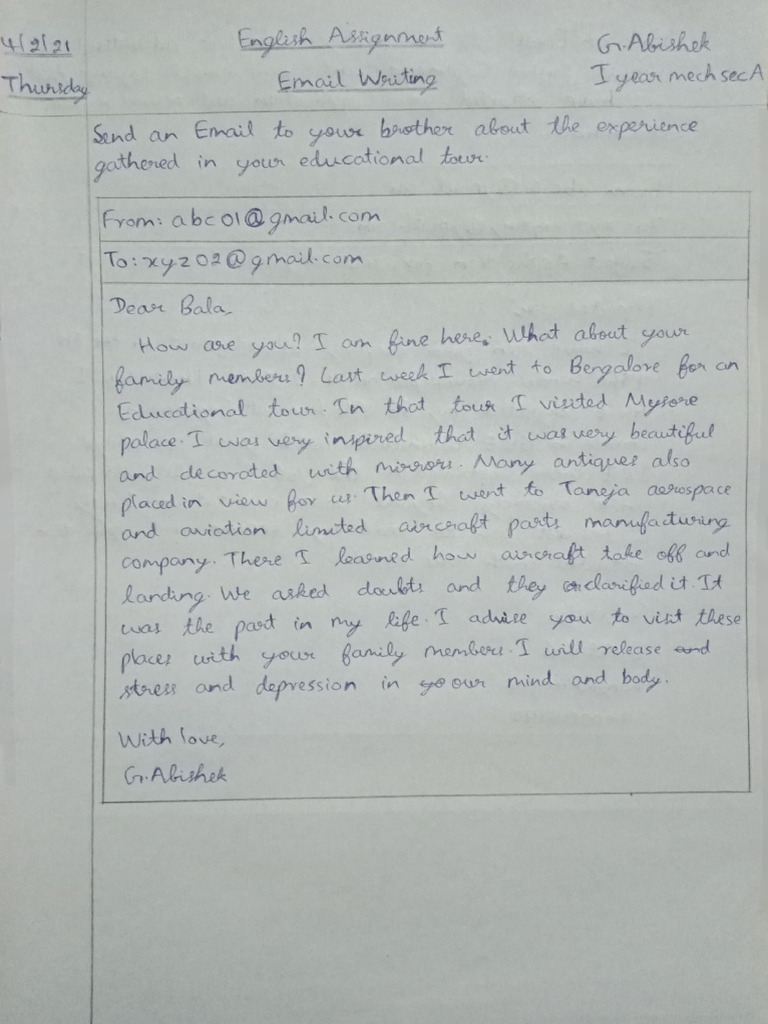 4/2/21
English Assignment
G.Abishek
Thursday
Email Writing
I year mech sec A
Send an Email to your brother about the experience
gathered in your educational tour.
From: abc01@gmail.com
To: xyz02@gmail.com
Dear Bala,
How are you? I am fine here. What about your
family members? Last week I went to Bengalore for an
Educational tour. In that tour I visited Mysore
palace. I was very inspired that it was very beautiful
and decorated with mirrors. Many antiques also
placed in view for us. Then I went to Taneja aerospace
and aviation limited aircraft parts manufacturing
company. There I learned how aircraft take off and
landing. We asked doubts and they clarified it. It
was the part in my life. I advise you to visit these
places with your family members. I will release
stress and depression in our mind and body.
With love,
G.Abishek